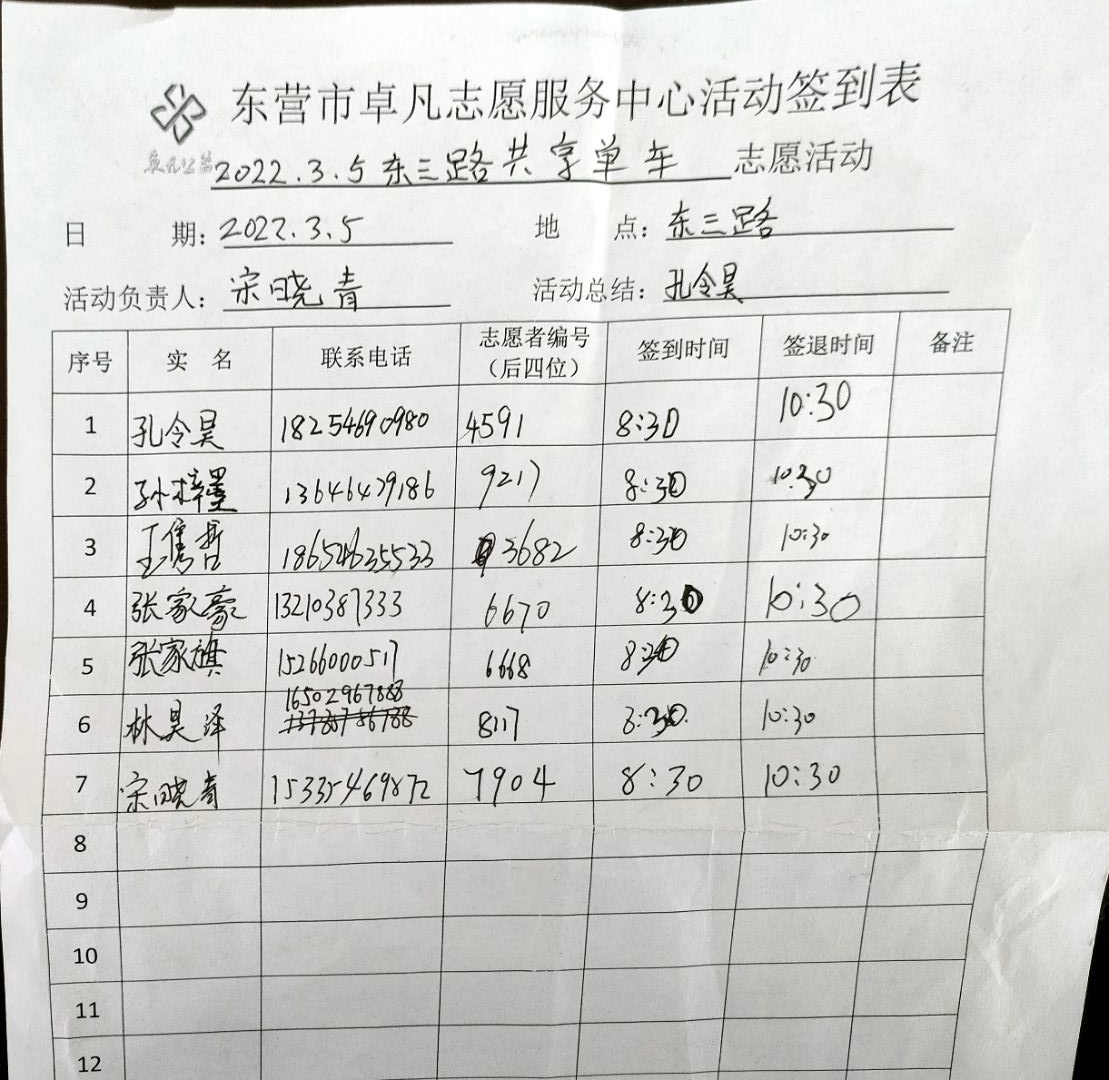 东营市卓凡志愿服务中心活动签到表
卓凡公益
2022.3.5东三路共享单车 志愿活动
日 期：2022.3.5 地 点：东三路
活动负责人：宋晓青 活动总结：孔令昊
序号 实 名 联系电话 志愿者编号（后四位） 签到时间 签退时间 备注
1 孔令昊 18254690980 4591 8:30 10:30
2 孙梓墨 13646479186 9217 8:30 10:30
3 王隽哲 18654635533 3682 8:30 10:30
4 张家豪 13210387333 6670 8:30 10:30
5 张家旗 15266000517 6668 8:30 10:30
6 林昊泽 16502967888 8117 8:30 10:30
7 宋晓青 15335469872 7904 8:30 10:30
8
9
10
11
12